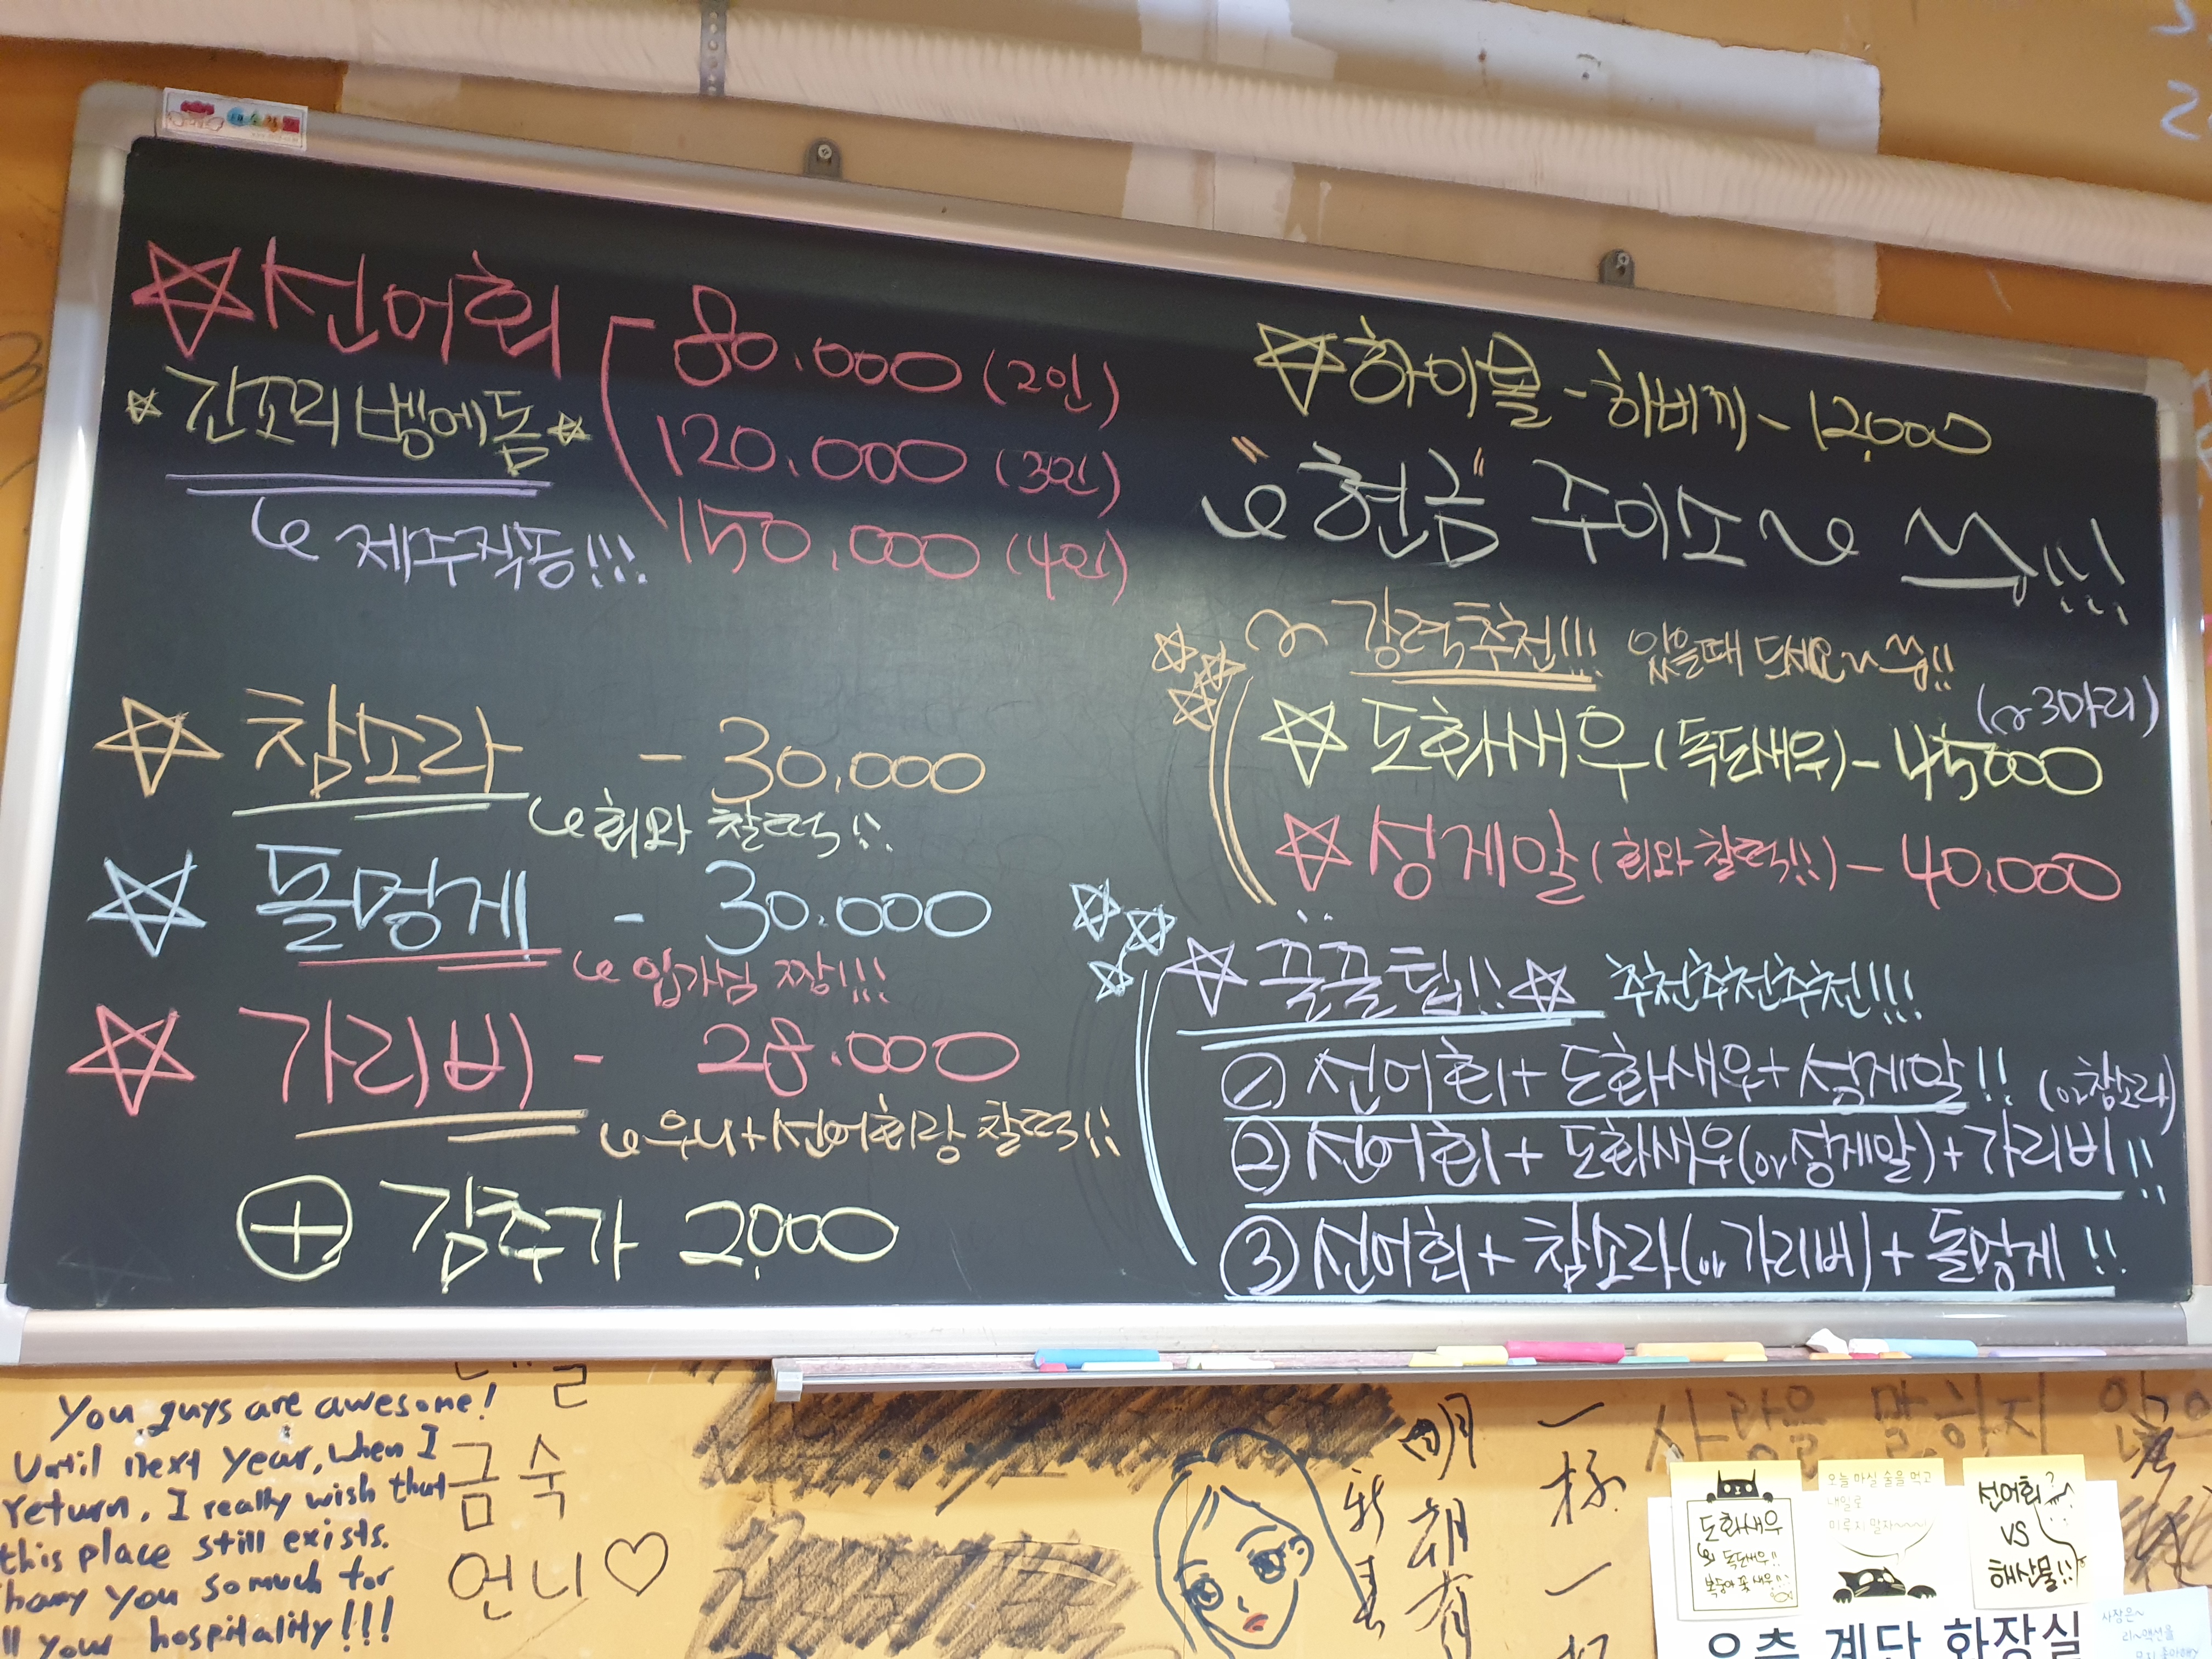 ☆선어회
80.000 (2인)
☆긴꼬리벵에돔☆
120.000 (3인)
150.000 (4인)
제주직송!!!
☆ 참소라 - 30.000
회와 찰떡!!
☆ 돌멍게 - 30.000
입가심 짱!!!
☆ 가리비 - 28.000
우니+선어회랑 찰떡!!
⊕ 김추가 2,000
☆하이볼 - 히비끼 - 12,000
"현금" 주이소~ 쓱!!!
강력추천!!! 있을때 드세요~쓱!!
(~3마리)
☆ 도화새우(독도새우) - 45,000
☆ 성게알(회와찰떡!!) - 40.000
☆ 꿀꿀팁!!☆ 추천추천추천!!!
① 선어회+도화새우+성게알!! (or참소라)
② 선어회+도화새우(or성게알)+가리비!!
③ 선어회+참소라(or가리비)+돌멍게!!
You guys are awesome!
Until next year, when I
return, I really wish that
this place still exists.
you so much for
your hospitality!!!
금숙
언니♡
明
朝
有
新
一
杯
一
사랑을 말하지
도화새우
독도새우!!
오늘 마실 술을 먹고
내일로
미루지 말자~~~
선어회?
VS
해산물!!
우측 계단 화장실
사장은~
리~액션을